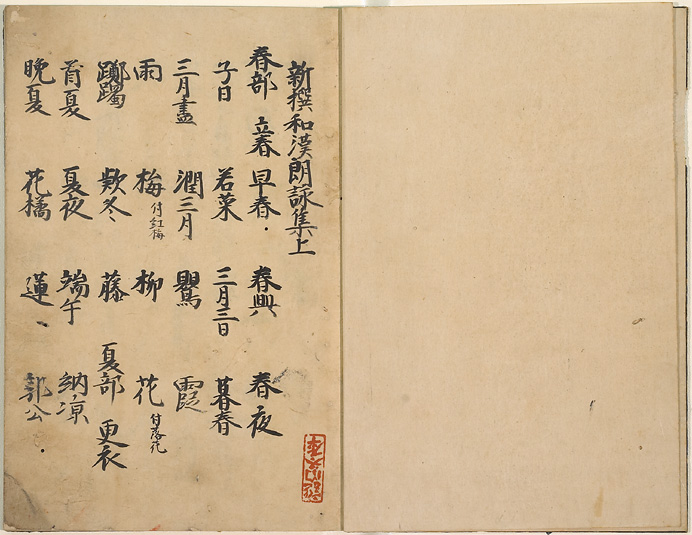 新撰和漢朗詠集上
春部 立春 早春 春興 春夜
子日 若菜 三月三日 暮春
三月盡 潤三月 鸎 霞
雨 梅 付紅梅 柳 花 付落花
躑躅 欵冬 藤 夏部 更衣
首夏 夏夜 端午 納凉
晩夏 花橘 蓮 郭公